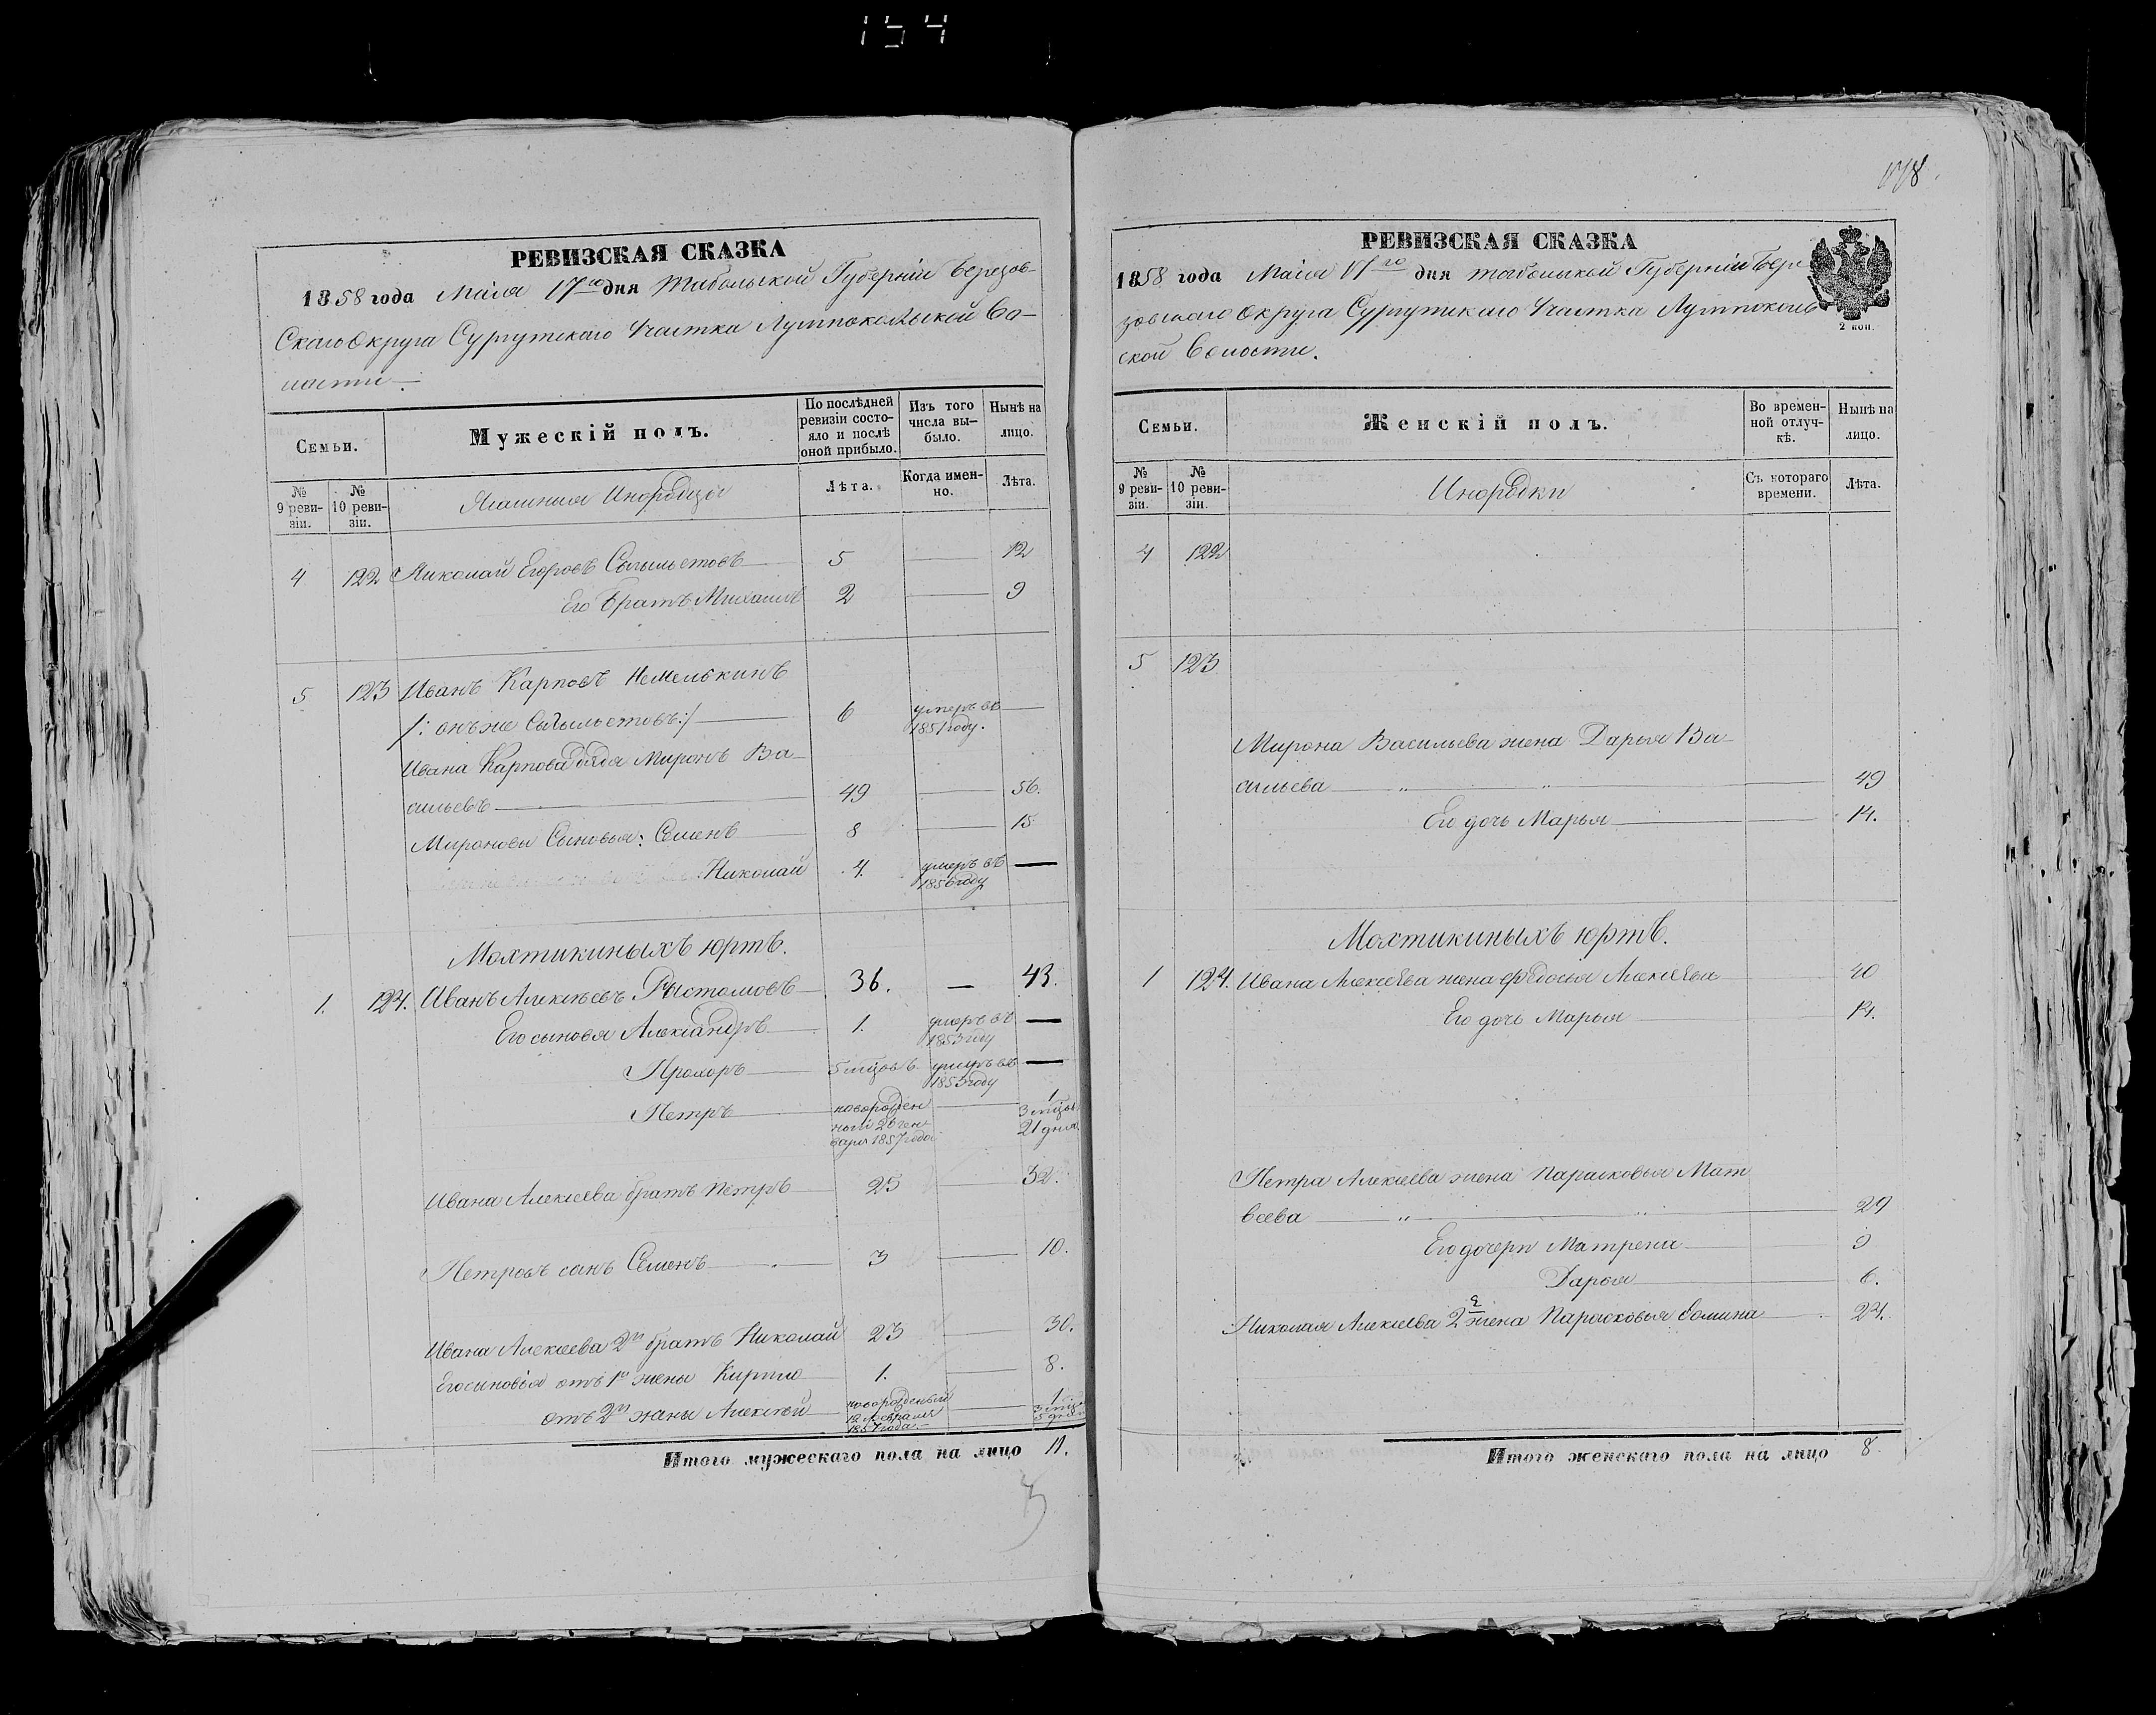 154
РЕВИЗСКАЯ СКАЗКА
1858 года Маія 17го дня Тобольской Губерніи Березов-
скаго Округа Сургутскаго Участка Лумпокольской Во-
лости.
Семьи.
Мужескій полъ.
По послѣдней ревизіи состояло и послѣ оной прибыло.
Изъ того числа выбыло.
Нынѣ на лицо.
№ 9 ревизіи.
№ 10 ревизіи.
Ясашныя Инородцы
Лѣта.
Когда именно.
Лѣта.
4 122 Николай Егоровъ 5 — 12
Его братъ Михаилъ 2 — 9
5 123 Иванъ Карповъ Немелькинъ
/: онъ же :/ 6 умеръ въ 1851 году. —
Ивана Карпова дядя Миронъ Ва-
сильевъ 49 — 56.
Мироновы Сыновья: Семенъ 8 — 15
Николай 4. умеръ въ 1856 году —
Мохтикиныхъ юртъ.
1. 124. Иванъ Алексѣевъ 36. — 43.
Его сыновья Александръ 1. умеръ въ 1853 году —
Прохоръ 5 мѣцовъ умеръ въ 1853 году —
Петръ новорожденный 26 генваря 1857 года — 1 3 мѣцов 21 дня.
Ивана Алексеева братъ Петръ 25 — 32.
Петровъ сынъ Семенъ 3 — 10.
Ивана Алексеева 2й братъ Николай 23 — 30.
Его сыновья отъ 1й жены Кирило 1. — 8.
отъ 2й жены Алексѣй новорожденый 12 февраля 1857 года — 1 3 мѣц 5 дня
Итого мужескаго пола на лицо 11.
РЕВИЗСКАЯ СКАЗКА
1858 года Маія 17го дня Тобольской Губерніи Бере
зовскаго Округа Сургутскаго Участка Лумпоколь
ской Волости.
2 коп.
Семьи.
Женскій полъ.
Во временной отлучкѣ.
Нынѣ на лицо.
№ 9 ревизіи.
№ 10 ревизіи.
Инородки
Съ котораго времени.
Лѣта.
4 122
5 123
Мирона Васильева жена Дарья Ва-
сильева 49
Его дочь Марья 14.
Мохтикиныхъ юртъ.
1 124. Ивана Алексѣева жена Федосья Алексѣева 40
Его дочь Марья 14.
Петра Алексеева жена Парасковья Мат
веева 29
Его дочери Матрена 9
Дарья 6.
Николая Алексеева 2я жена Парасковья Фомина 24.
Итого женскаго пола на лицо 8